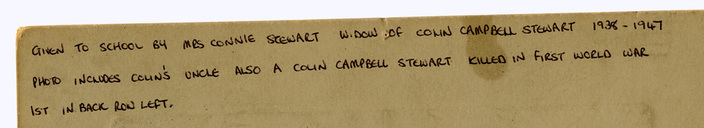 GIVEN TO SCHOOL BY MRS CONNIE STEWART WIDOW OF COLIN CAMPBELL STEWART 1938-1947
PHOTO INCLUDES COLIN'S UNCLE ALSO A COLIN CAMPBELL STEWART KILLED IN FIRST WORLD WAR
1ST IN BACK ROW LEFT.